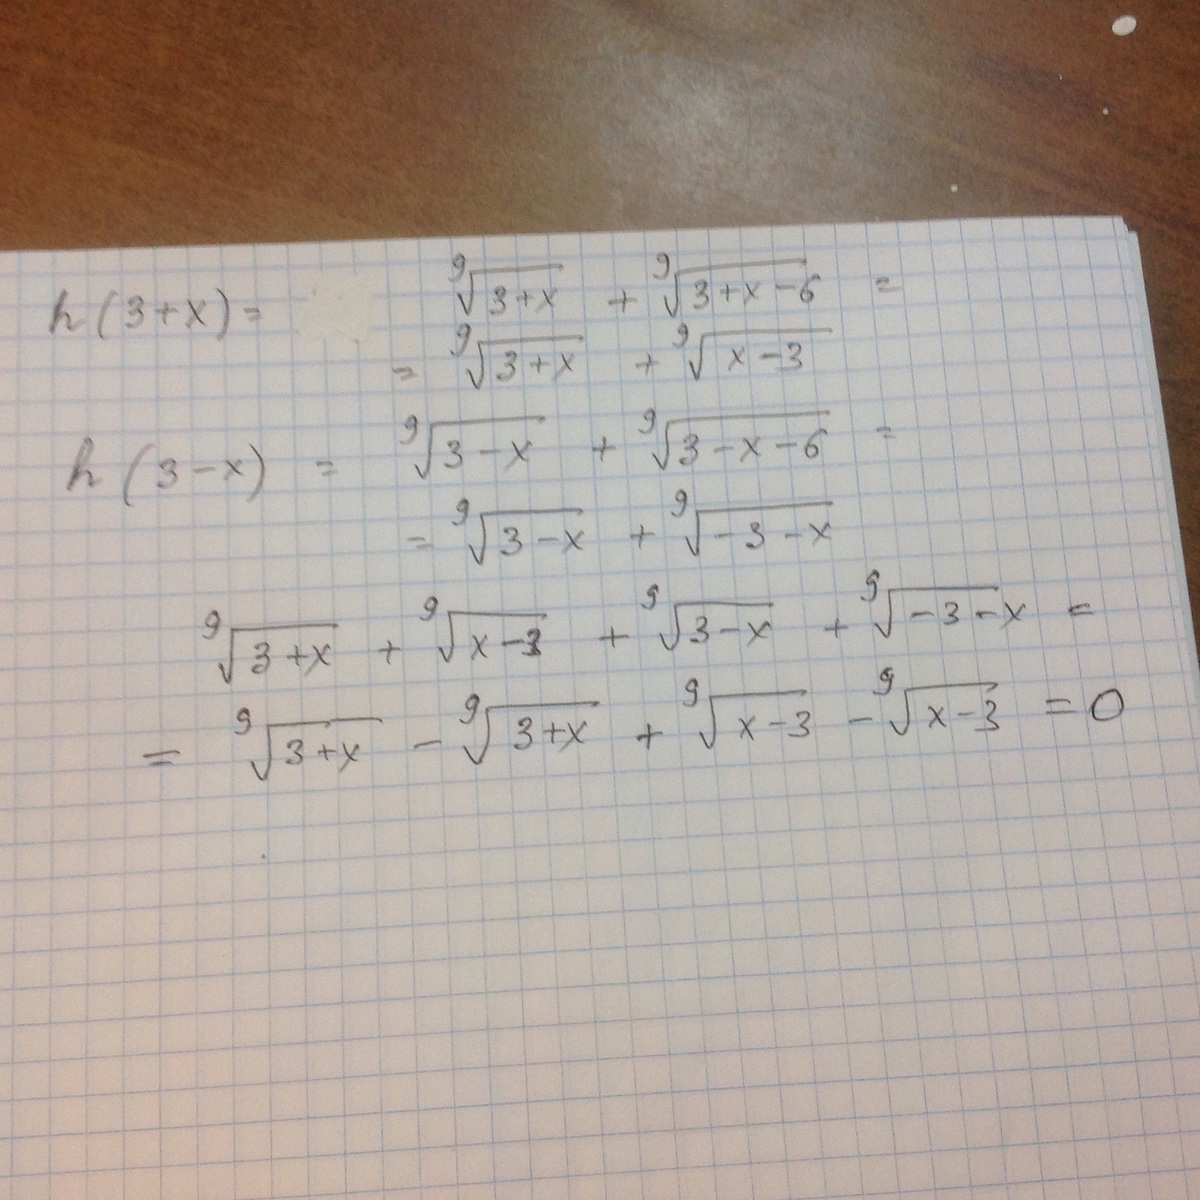 h(3+x)= ⁹√(3+x) + ⁹√(3+x-6) =
= ⁹√(3+x) + ⁹√(x-3)
h(3-x) = ⁹√(3-x) + ⁹√(3-x-6) =
= ⁹√(3-x) + ⁹√(-3-x)
⁹√(3+x) + ⁹√(x-3) + ⁹√(3-x) + ⁹√(-3-x) =
= ⁹√(3+x) - ⁹√(3+x) + ⁹√(x-3) - ⁹√(x-3) = 0